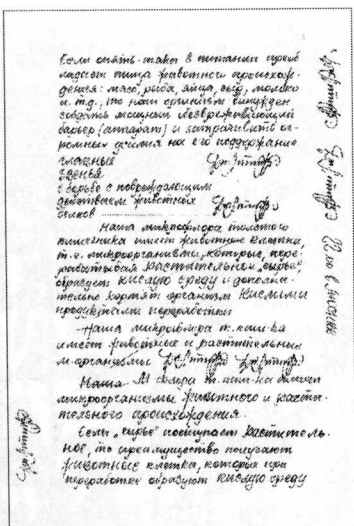 Если опять-таки в питании преоб
ладает пища животного происхож-
дения: мясо, рыба, яйца, сыр, молоко
и т.д., то наш организм вынужден
создать мощный обезвреживающий
барьер (аппарат) и затрачивать ог-
ромные усилия на его поддержание
главные
звенья
в борьбе с повреждающим
действием животных
белков
Наша микрофлора толстого
кишечника имеет животные клетки,
т.е. микроорганизмы, которые, пере
рабатывая растительное „сырьё"
образует кислую среду и дополни-
тельно кормят организм кислыми
продуктами переработки
Наша микрофлора т. киш-ка
имеет животные и растительные
м-организмы
Наша М флора т. киш-ка
микроорганизмы животного и расти-
тельного происхождения.
Если „сырьё" поступает раститель-
ное, то преимущество получают
животные клетки, которые при
переработке образуют кислую среду